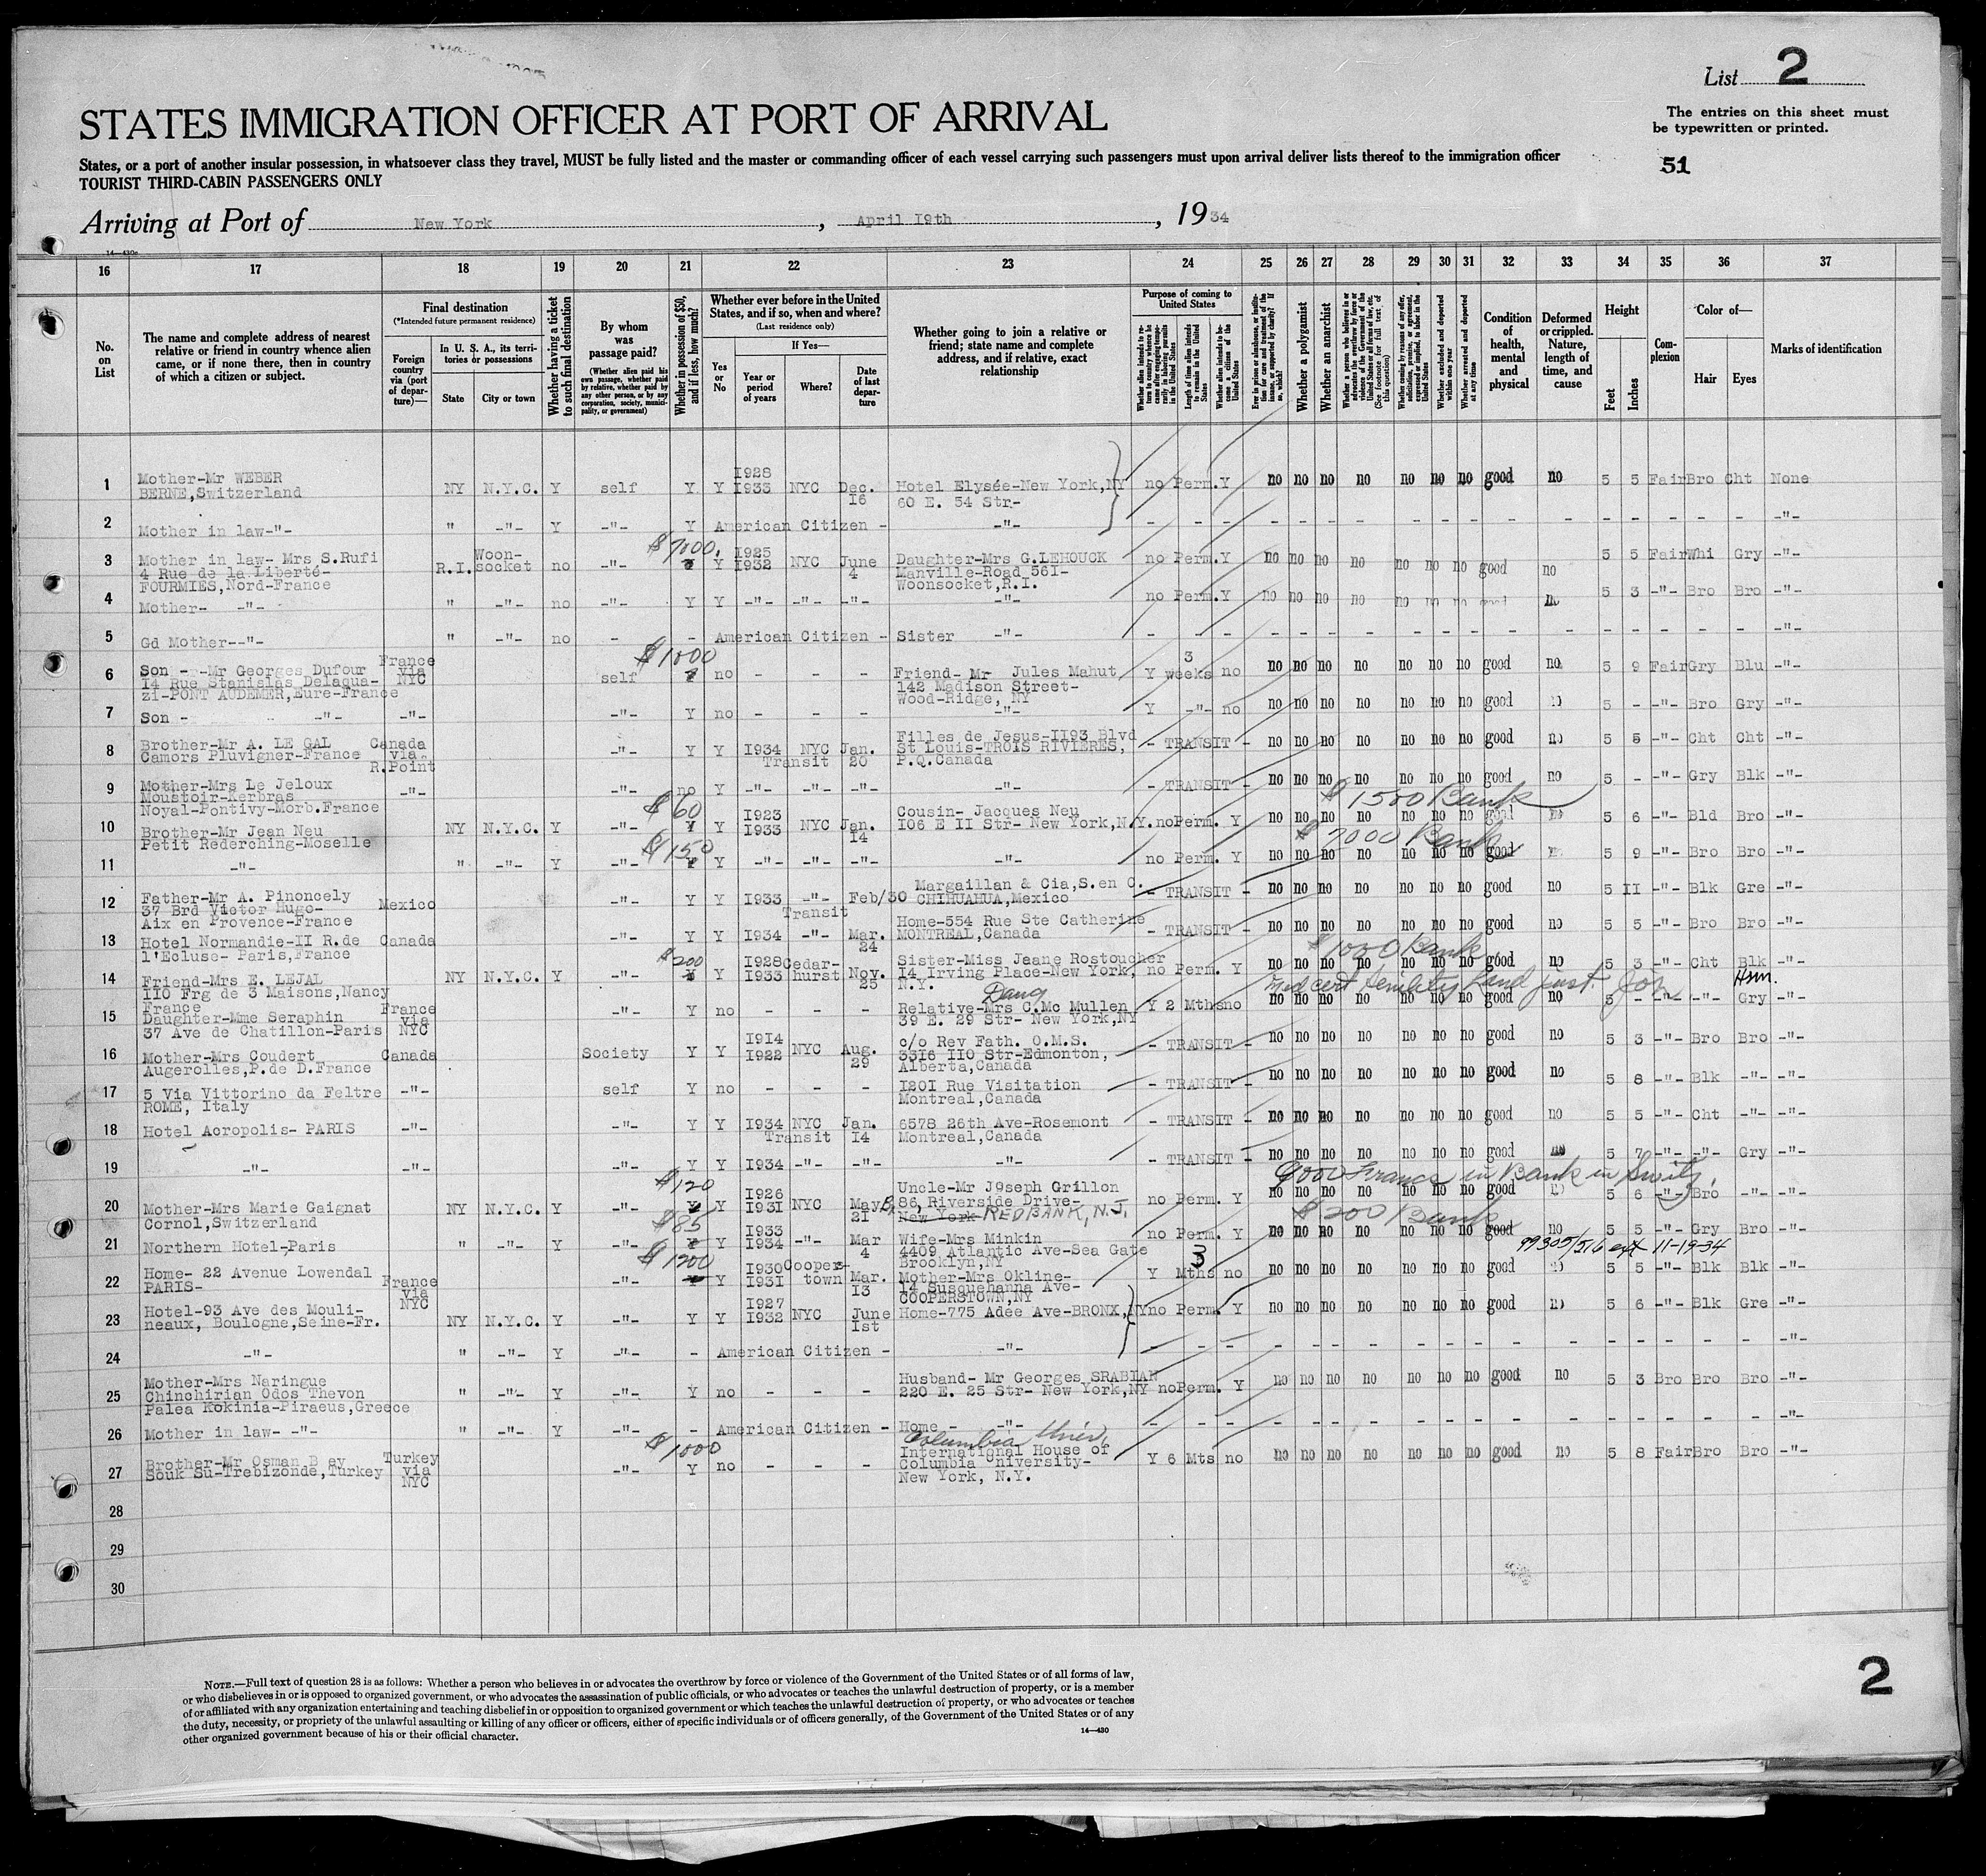 List 2
STATES IMMIGRATION OFFICER AT PORT OF ARRIVAL
The entries on this sheet must
be typewritten or printed.
States, or a port of another insular possession, in whatsoever class they travel, MUST be fully listed and the master or commanding officer of each vessel carrying such passengers must upon arrival deliver lists thereof to the immigration officer
TOURIST THIRD-CABIN PASSENGERS ONLY
51
Arriving at Port of New York, April I9th, 1934
16 17 18 19 20 21 22 23 24 25 26 27 28 29 30 31 32 33 34 35 36 37
No. on List
The name and complete address of nearest
relative or friend in country whence alien
came, or if none there, then in country
of which a citizen or subject.
Final destination
(*Intended future permanent residence)
Foreign country via (port of departure)—
In U. S. A., its territories or possessions
State
City or town
Whether having a ticket to such final destination
By whom was passage paid?
(Whether alien paid his own passage, whether paid by relative, whether paid by any other person, or by any corporation, society, municipality, or government)
Whether in possession of $50, and if less, how much?
Whether ever before in the United States, and if so, when and where?
(Last residence only)
Yes or No
If Yes—
Year or period of years
Where?
Date of last departure
Whether going to join a relative or
friend; state name and complete
address, and if relative, exact
relationship
Purpose of coming to United States
Length of time alien intends to remain in the United States
Whether alien intends to become a citizen of the United States
Whether a polygamist
Whether an anarchist
Whether excluded and deported within one year
Whether arrested and deported at any time
Condition of health, mental and physical
Deformed or crippled. Nature, length of time, and cause
Height
Feet
Inches
Complexion
Color of—
Hair
Eyes
Marks of identification
1 Mother-Mr WEBER BERNE,Switzerland NY N.Y.C. Y self Y Y I928 I933 NYC Dec. I6 Hotel Elysée-New York,NY 60 E. 54 Str- no Perm. Y no no no no no no no good no 5 5 Fair Bro Cht None
2 Mother in law-"- " -"- Y -"- Y American Citizen - -"- - - - - - - - - - - - - - - - - - - -"-
3 Mother in law- Mrs S.Rufi 4 Rue de la Liberté- FOURMIES,Nord-France R.I. Woonsocket no -"- $ 7000. Y I925 I932 NYC June 4 Daughter-Mrs G.LEHOUCK Manville-Road 56I- Woonsocket,R.I. no Perm. Y no no no no no no no good no 5 5 Fair Whi Gry -"-
4 Mother- -"- " -"- no -"- Y Y -"- -"- -"- -"- no Perm. Y no no no no no no no good no 5 3 -"- Bro Bro -"-
5 Gd Mother--"- " -"- no - - American Citizen - Sister -"- - - - - - - - - - - - - - - - - - -"-
6 Son --Mr Georges Dufour I4 Rue Stanislas Delaquazi-PONT AUDEMER,Eure-France France via NYC self $ 1000 no - - - Friend- Mr Jules Mahut 142 Madison Street- Wood-Ridge, NY Y 3 weeks no no no no no no no no good no 5 9 Fair Gry Blu -"-
7 Son - -"- -"- -"- Y no - - - -"- Y -"- no no no no no no no no good 5 - -"- Bro Gry -"-
8 Brother-Mr A. LE GAL Camors Pluvigner-France Canada via R.Point -"- Y Y I934 NYC Jan. 20 Transit Filles de Jesus-II93 Blvd St Louis-TROIS RIVIERES, P.Q.Canada - TRANSIT - no no no no no no no good no 5 5 -"- Cht Cht -"-
9 Mother-Mrs Le Jeloux Moustoir-Kerbras Noyal-Pontivy-Morb.France -"- -"- no Y -"- -"- -"- -"- - TRANSIT - no no no no no no no good no 5 - -"- Gry Blk -"-
$ 1500 Bank
10 Brother-Mr Jean Neu Petit Rederching-Moselle NY N.Y.C. Y -"- $ 60 Y I923 I933 NYC Jan. I4 Cousin- Jacques Neu I06 E II Str- New York,N.Y. no Perm. Y no no no no no no no good no 5 6 -"- Bld Bro -"-
$ 2000 Bank
11 -"- " -"- Y -"- $ 150 Y -"- -"- -"- -"- no Perm. Y no no no no no no no good 5 9 -"- Bro Bro -"-
12 Father-Mr A. Pinoncely 37 Brd Victor Hugo- Aix en Provence-France Mexico -"- Y Y I933 -"- Feb/30 Transit Margaillan & Cia,S.en C. CHIHUAHUA,Mexico - TRANSIT - no no no no no no no good no 5 II -"- Blk Gre -"-
13 Hotel Normandie-II R.de l'Ecluse- Paris,France Canada -"- Y Y I934 -"- Mar. 24 Home-554 Rue Ste Catherine MONTREAL,Canada - TRANSIT - no no no no no no no good no 5 5 -"- Bro Bro -"-
$ 1000 Bank
14 Friend-Mrs E. LEJAL II0 Frg de 3 Maisons,Nancy France NY N.Y.C. Y -"- $ 200 Y I928 I933 Cedarhurst Nov. 25 Sister-Miss Jeane Rostoucher I4 Irving Place-New York, N.Y. no Perm. Y no no no no no no no good no 5 3 -"- Cht Blk -"-
Med cert Senility
15 Daughter-Mme Seraphin 37 Ave de Chatillon-Paris France via NYC -"- Y no - - - Daug Relative-Mrs C.Mc Mullen 39 E. 29 Str- New York,NY Y 2 Mths no no no no no no no no good no 5 - -"- -"- Gry -"-
16 Mother-Mrs Coudert Augerolles,P.de D.France Canada Society Y Y I9I4 I922 NYC Aug. 29 c/o Rev Fath. O.M.S. 33I6 II0 Str-Edmonton, Alberta,Canada - TRANSIT - no no no no no no no good no 5 3 -"- Bro Bro -"-
17 5 Via Vittorino da Feltre ROME, Italy -"- self Y no - - - I20I Rue Visitation Montreal,Canada - TRANSIT - no no no no no no no good no 5 8 -"- Blk -"- -"-
18 Hotel Acropolis- PARIS -"- -"- Y Y I934 NYC Jan. I4 Transit 6578 26th Ave-Rosemont Montreal,Canada - TRANSIT - no no no no no no no good no 5 5 -"- Cht -"- -"-
19 -"- -"- -"- Y Y I934 -"- -"- -"- - TRANSIT - no no no no no no no good 5 7 -"- -"- Gry -"-
9000 Francs in Bank in Switz.
20 Mother-Mrs Marie Gaignat Cornol,Switzerland NY N.Y.C. Y -"- $ 120 Y I926 I931 NYC May 2I Uncle-Mr J9seph Grillon 86, Riverside Drive- New York RED BANK, N.J. no Perm. Y no no no no no no no good 5 6 -"- Bro -"- -"-
$ 200 Bank
21 Northern Hotel-Paris " -"- Y -"- $ 85 Y I933 I934 -"- Mar 4 Wife-Mrs Minkin 4409 Atlantic Ave-Sea Gate Brooklyn,NY no Perm. Y no no no no no no no good no 5 5 -"- Gry Bro -"-
99305/516 ext 11-19-34
22 Home- 22 Avenue Lowendal PARIS- France via NYC -"- $ 1200 Y I930 I931 Cooperstown Mar. I3 Mother-Mrs Okline- I4 Susquehanna Ave- COOPERSTOWN,NY Y 3 Mths no no no no no no no no good 5 5 -"- Blk Blk -"-
23 Hotel-93 Ave des Moulineaux, Boulogne,Seine-Fr. NY N.Y.C. Y -"- Y Y I927 I932 NYC June Ist Home-775 Adee Ave-BRONX,NY no Perm. Y no no no no no no no good no 5 6 -"- Blk Gre -"-
24 -"- " -"- Y -"- - American Citizen - -"- - - - - - - - - - - - - - - - - - -"-
25 Mother-Mrs Naringue Chinchirian Odos Thevon Palea Kokinia-Piraeus,Greece " -"- Y -"- Y no - - - Husband- Mr Georges SRABIAN 220 E. 25 Str- New York,NY no Perm. Y no no no no no no no good no 5 3 Bro Bro Bro -"-
26 Mother in law- -"- " -"- Y -"- - American Citizen - Home - -"- - - - - - - - - - - - - - - - - - -"-
27 Brother-Mr Osman B ey Souk Su-Trebizonde,Turkey Turkey via NYC -"- $ 1000 Y no - - - Columbia Univ. International House of Columbia University- New York, N.Y. Y 6 Mts no no no no no no no no good no 5 8 Fair Bro Bro -"-
28
29
30
NOTE.—Full text of question 28 is as follows: Whether a person who believes in or advocates the overthrow by force or violence of the Government of the United States or of all forms of law,
or who disbelieves in or is opposed to organized government, or who advocates the assassination of public officials, or who advocates or teaches the unlawful destruction of property, or is a member
of or affiliated with any organization entertaining and teaching disbelief in or opposition to organized government or which teaches the unlawful destruction of property, or who advocates or teaches
the duty, necessity, or propriety of the unlawful assaulting or killing of any officer or officers, either of specific individuals or of officers generally, of the Government of the United States or of any
other organized government because of his or their official character.
14—430
2